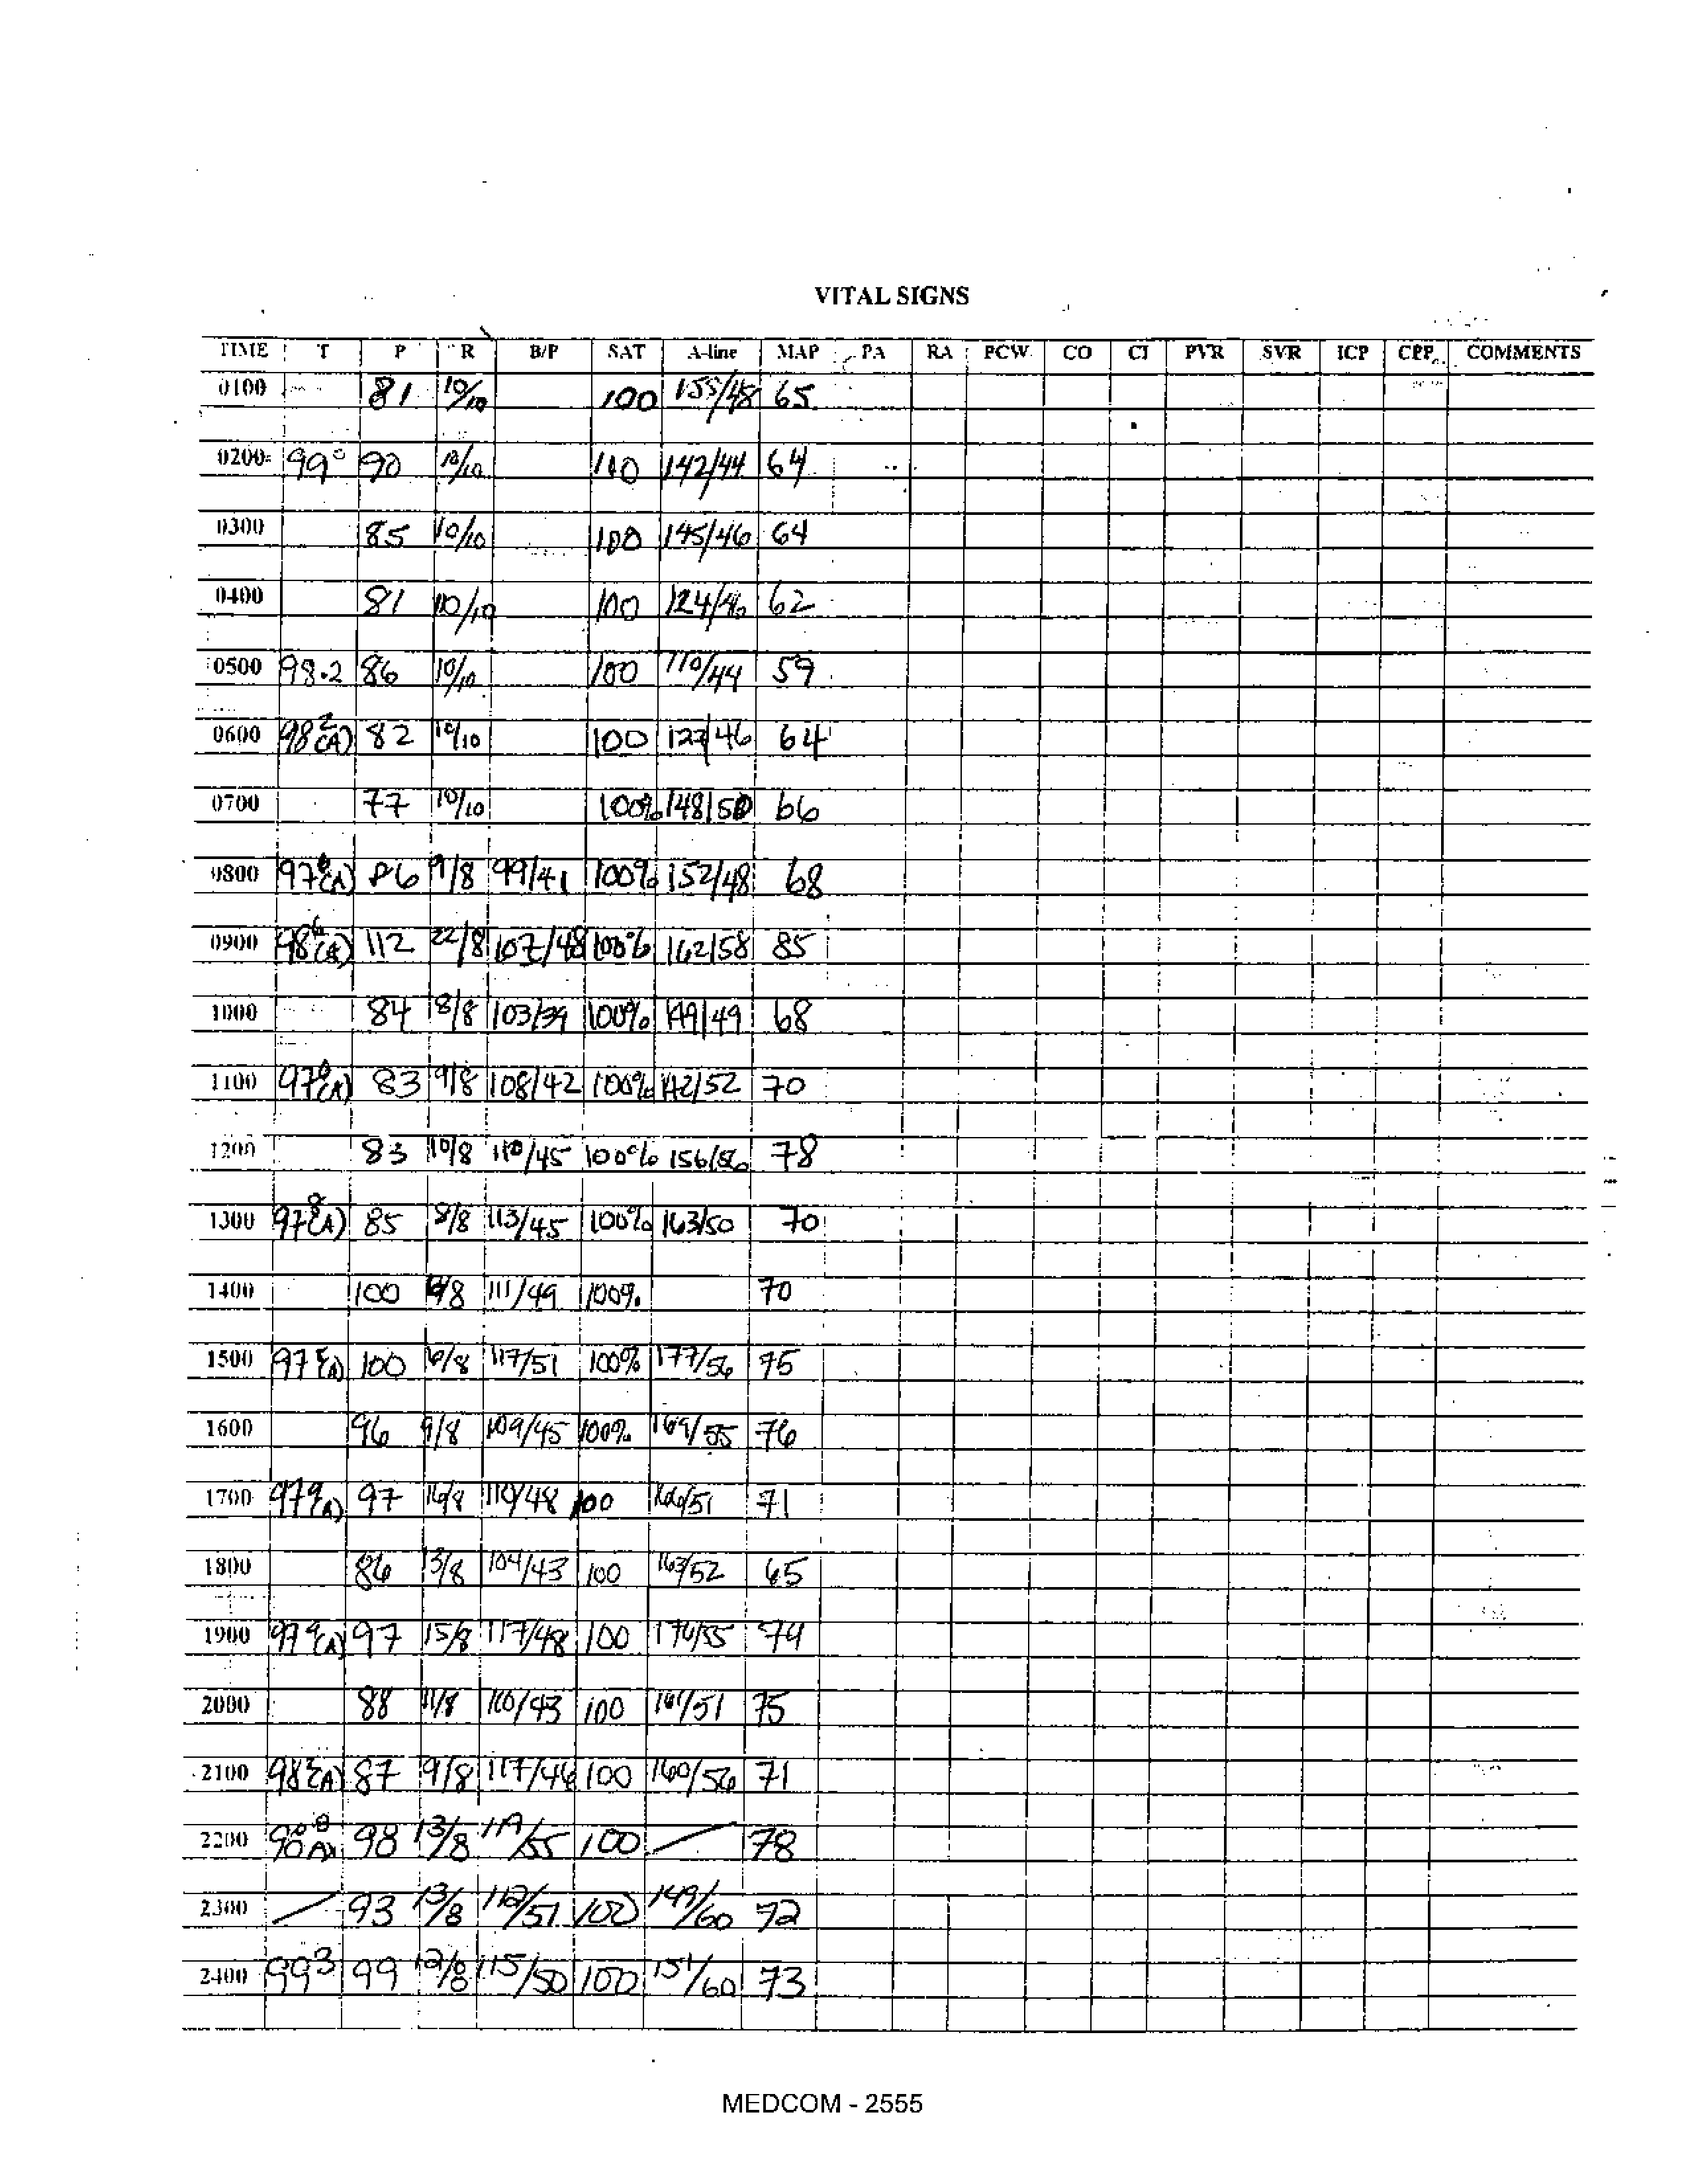 VITAL SIGNS
TIME T P R B/P SAT A-line MAP PA RA PCW CO CI PVR SVR ICP CPP COMMENTS
0100 81 10/10 100 155/48 65
0200 99° 90 10/10 100 142/44 64
0300 85 10/10 100 145/46 64
0400 81 10/10 100 124/46 62
0500 98.2 86 10/10 100 110/44 59
0600 98² (A) 82 10/10 100 46 64
0700 77 10/10 100% 148/50 66
0800 (A) 86 9/8 99/41 100% 152/48 68
0900 98⁶ 112 22/8 107/48 100% 162/58 85
1000 84 8/8 103/39 100% 149/49 68
1100 (A) 83 9/8 108/42 100% 142/52 70
1200 83 10/8 110/45 100% 156/56 78
1300 97⁸ (A) 85 8/8 113/45 100% 163/50 70
1400 100 111/49 100% 70
1500 (A) 100 117/51 100% 177/56 75
1600 96 9/8 109/45 100% 169/55 76
1700 97⁹ (A) 97 16/8 48 100 166/51 71
1800 86 13/8 104/43 100 163/52 65
1900 97⁹ (A) 97 15/8 117/48 100 176/55 74
2000 88 11/8 43 100 161/51 75
2100 98² (A) 87 9/8 117/46 100 160/56 71
2200 98 13/8 119/55 100 / 78
2300 / 93 13/8 112/51 100 149/60 72
2400 99³ 99 12/8 115/50 100 151/60 73
MEDCOM - 2555